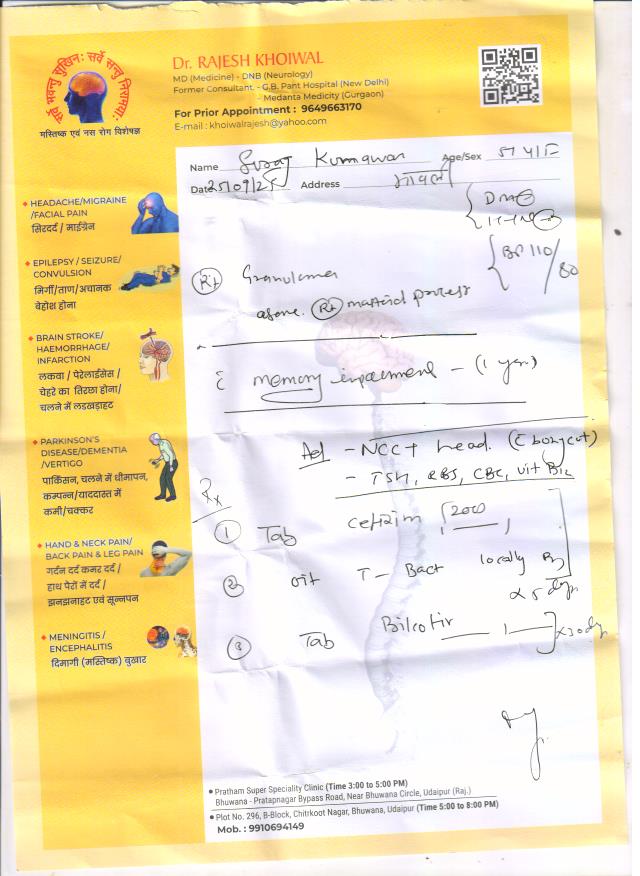 सर्वे भवन्तु सुखिनः सर्वे सन्तु निरामयाः
मस्तिष्क एवं नस रोग विशेषज्ञ
Dr. RAJESH KHOIWAL
MD (Medicine) - DNB (Neurology)
Former Consultant - G.B. Pant Hospital (New Delhi)
- Medanta Medicity (Gurgaon)
For Prior Appointment : 9649663170
E-mail : khoiwalrajesh@yahoo.com
Name Kunwar Age/Sex
Date 25/09/25 Address
BP 110/80
HEADACHE/MIGRAINE
/FACIAL PAIN
सिरदर्द / माईग्रेन
EPILEPSY / SEIZURE/
CONVULSION
मिर्गी/ताण/अचानक
बेहोश होना
BRAIN STROKE/
HAEMORRHAGE/
INFARCTION
लकवा / पेरेलाईसेस /
चेहरे का तिरछा होना/
चलने में लडखड़ाहट
PARKINSON'S
DISEASE/DEMENTIA
/VERTIGO
पार्किसन, चलने में धीमापन,
कम्पन्न/याददास्त में
कमी/चक्कर
HAND & NECK PAIN/
BACK PAIN & LEG PAIN
गर्दन दर्द कमर दर्द /
हाथ पेरों में दर्द /
झनझनाहट एवं सूनपन
MENINGITIS /
ENCEPHALITIS
दिमागी (मस्तिष्क) बुखार
Rt Granuloma
above Rt mastoid process
memory impairment - (1 year)
Ad - NCCT head.
- TSH, RBS, CBC, Vit B12
Rx
1 Tab 200
2 oit T - Bact locally
x 5 days
3 Tab 1 x 30 days
Pratham Super Speciality Clinic (Time 3:00 to 5:00 PM)
Bhuwana - Pratapnagar Bypass Road, Near Bhuwana Circle, Udaipur (Raj.)
Plot No. 296, B-Block, Chitrkoot Nagar, Bhuwana, Udaipur (Time 5:00 to 8:00 PM)
Mob. : 9910694149